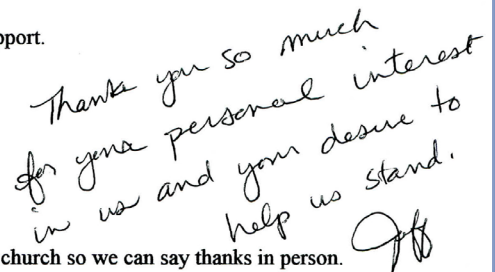 pport.
Thank you so much
for your personal interest
in us and your desire to
help us stand.
Jeff
church so we can say thanks in person.